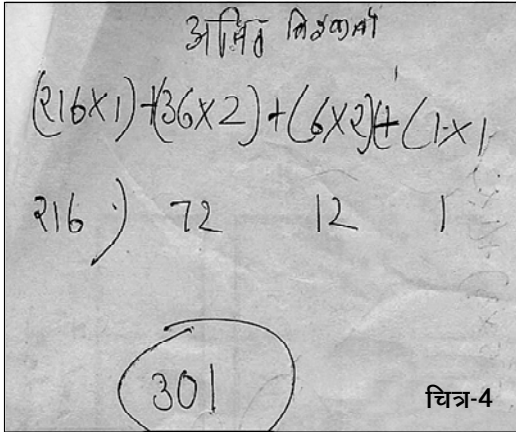 अमित विश्वकर्मा
(216×1)+(36×2)+(6×2)+(1×1
216 ) 72 12 1
301
चित्र-4